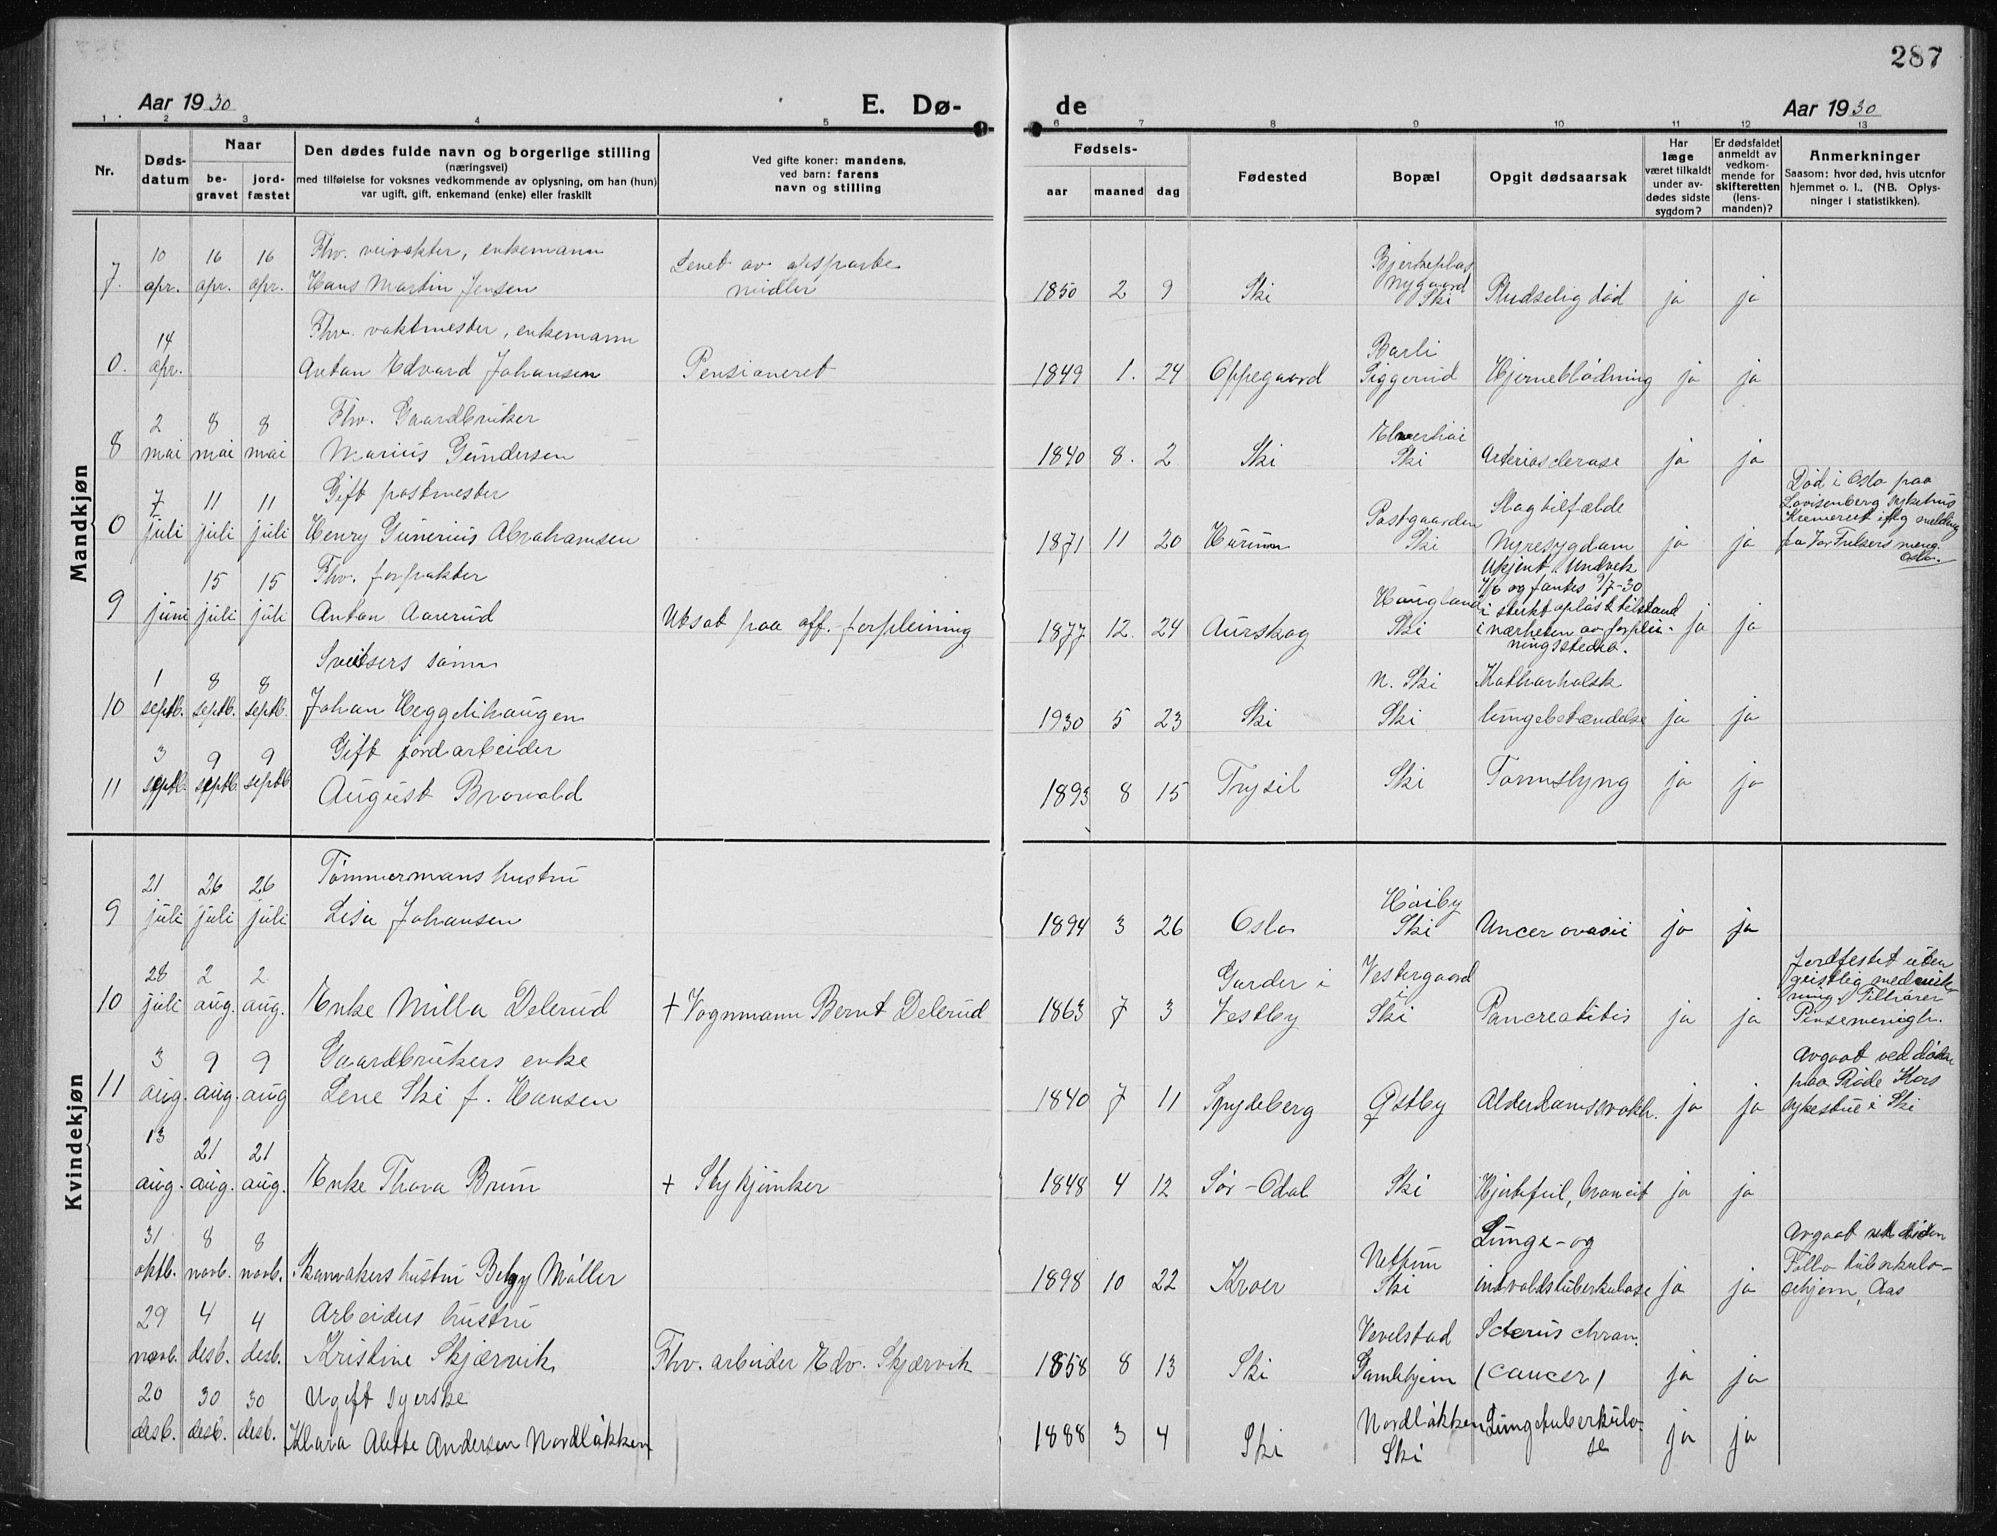 287
Aar 1930
E. Dø-
de
Aar 1930
1 2 3 4 5 6 7 8 9 10 11 12 13
Nr.
Døds-
datum
Naar
be-
gravet
jord-
fæstet
Den dødes fulde navn og borgerlige stilling
(næringsvei)
med tilføielse for voksnes vedkommende av oplysning, om han (hun)
var ugift, gift, enkemand (enke) eller fraskilt
Ved gifte koner: mandens,
ved barn: farens
navn og stilling
Fødsels-
aar maaned dag
Fødested
Bopæl
Opgit dødsaarsak
Har
læge
været tilkaldt
under av-
dødes sidste
sygdom?
Er dødsfaldet
anmeldt av
vedkom-
mende for
skifteretten
(lens-
manden)?
Anmerkninger
Saasom: hvor død, hvis utenfor
hjemmet o. l., (NB. Oplys-
ninger i statistikken).
Mandkjøn
10 16 16 Fhv. veivokter, enkemann Levet av opsparte Bjerkeplas
Nygaard
7. apr. apr. apr. Hans Martin Jensen midler 1850 2 9 Ski Ski Pludselig død ja ja
14 Fhv. vaktmester, enkemann Barli
0. apr. Anton Edvard Johansen Pensioneret 1849 1. 24 Oppegaard Siggerud Hjerneblødning ja ja
2 8 8 Fhv. Gaardbruker
8 mai mai mai Marius Gundersen 1840 8. 2 Ski Ski Arteriosclerose ja ja
7 11 11 Gift postmester Postgaarden Slagtilfælde Død i Oslo paa
Lovisenberg sykehus
Kremeret iflg melding
0 juli juli juli Henry Gunerius Abrahamsen 1871 11 20 Hurum Ski Nyresygdom ja ja fra Vor Frelsers meng.
Oslo.
15 15 Fhv. forpakter Haugland Ukjent. Undvek
7/6 og fantes 9/7-30
i sterkt opløst tilstand
9 juni juli juli Anton Aarerud Utsat paa off. forpleining 1877 12. 24 Aurskog Ski i nærheten av forplei- ja ja
ningsstedet.
1 8 8 Sveitsers sønn N. Ski Katharhalsk
10 septb. septb. septb. Johan Heggelihaugen 1930 5 23 Ski Ski lungebetændelse ja ja
3 9 9 Gift jordarbeider
11 septb. septb. septb. August Brovold 1893 8 15 Trysil Ski Tarmslyng ja ja
Kvindekjøn
21 26 26 Tømmermans hustru Høiby
9 juli juli juli Lisa Johansen 1894 3 26 Oslo Ski ja ja
28 2 2 Garder i Vestergaard Jordfestet uten
i geistlig medvirk-
ning. Tilhører
10 juli aug. aug. Enke Milla Delerud + Vognmann Bernt Delerud 1863 7 3 Vestby Ski Pancreatitis ja ja Pinsemenigh.
3 9 9 Gaardbrukers enke Avgaat ved døden
paa Røde Kors
11 aug. aug. aug Lene Ski f. Hansen 1840 7 11 Spydeberg Østby Alderdomssvakh. ja ja sykestue i Ski
13 21 21
aug. aug. aug. Enke Thora Brun + Stykjunker 1848 4 12 Sør-Odal Ski Hjertefeil, ja ja
31 8 8 Lunge- og Avgaat ved døden
Follo tuberkulo-
oktb. novb. novb. Skomakers hustru Betzy Møller 1898 10 22 Kroer Ski indvoldstuberkulose ja ja sehjem, Aas
29 4 4 Arbeiders hustru Vevelstad
novb. desb. desb. Kristine Skjærvik Fhv. arbeider Edv. Skjærvik 1858 8 13 Ski Gamlehjem (cancer) ja ja
20 30 30 Ugift syerske Nordløkken Lungetuberkulo-
desb. desb. desb. Klara Alette Andersen Nordløkken 1888 3 4 Ski Ski se ja ja